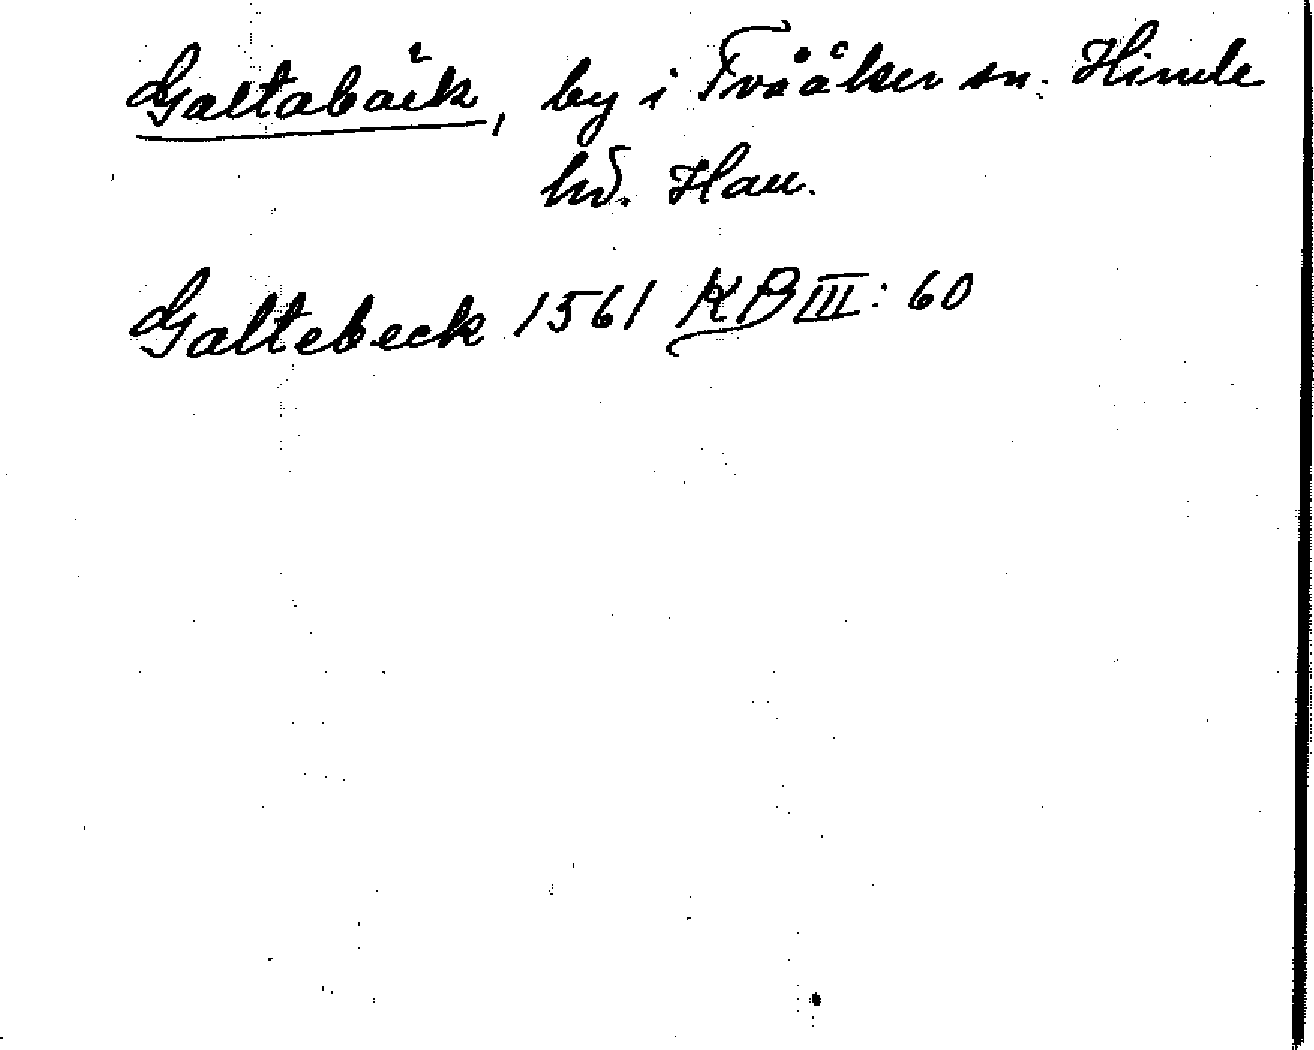 Galtabäck, by i Tvååker sn. Himle
hd. Hall.
Galtebeck 1561 KB III: 60